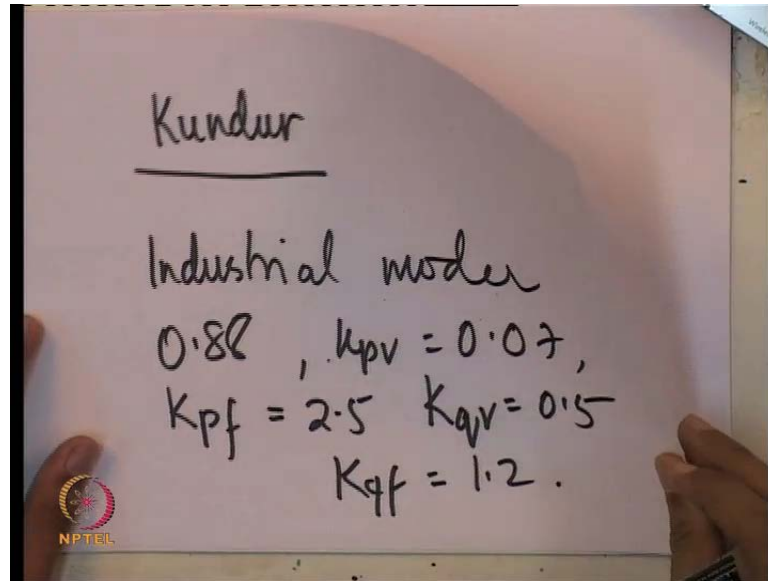 Kundur
Industrial model
0.88, Kpv = 0.07,
Kpf = 2.5 Kqv = 0.5
Kqf = 1.2.
NPTEL